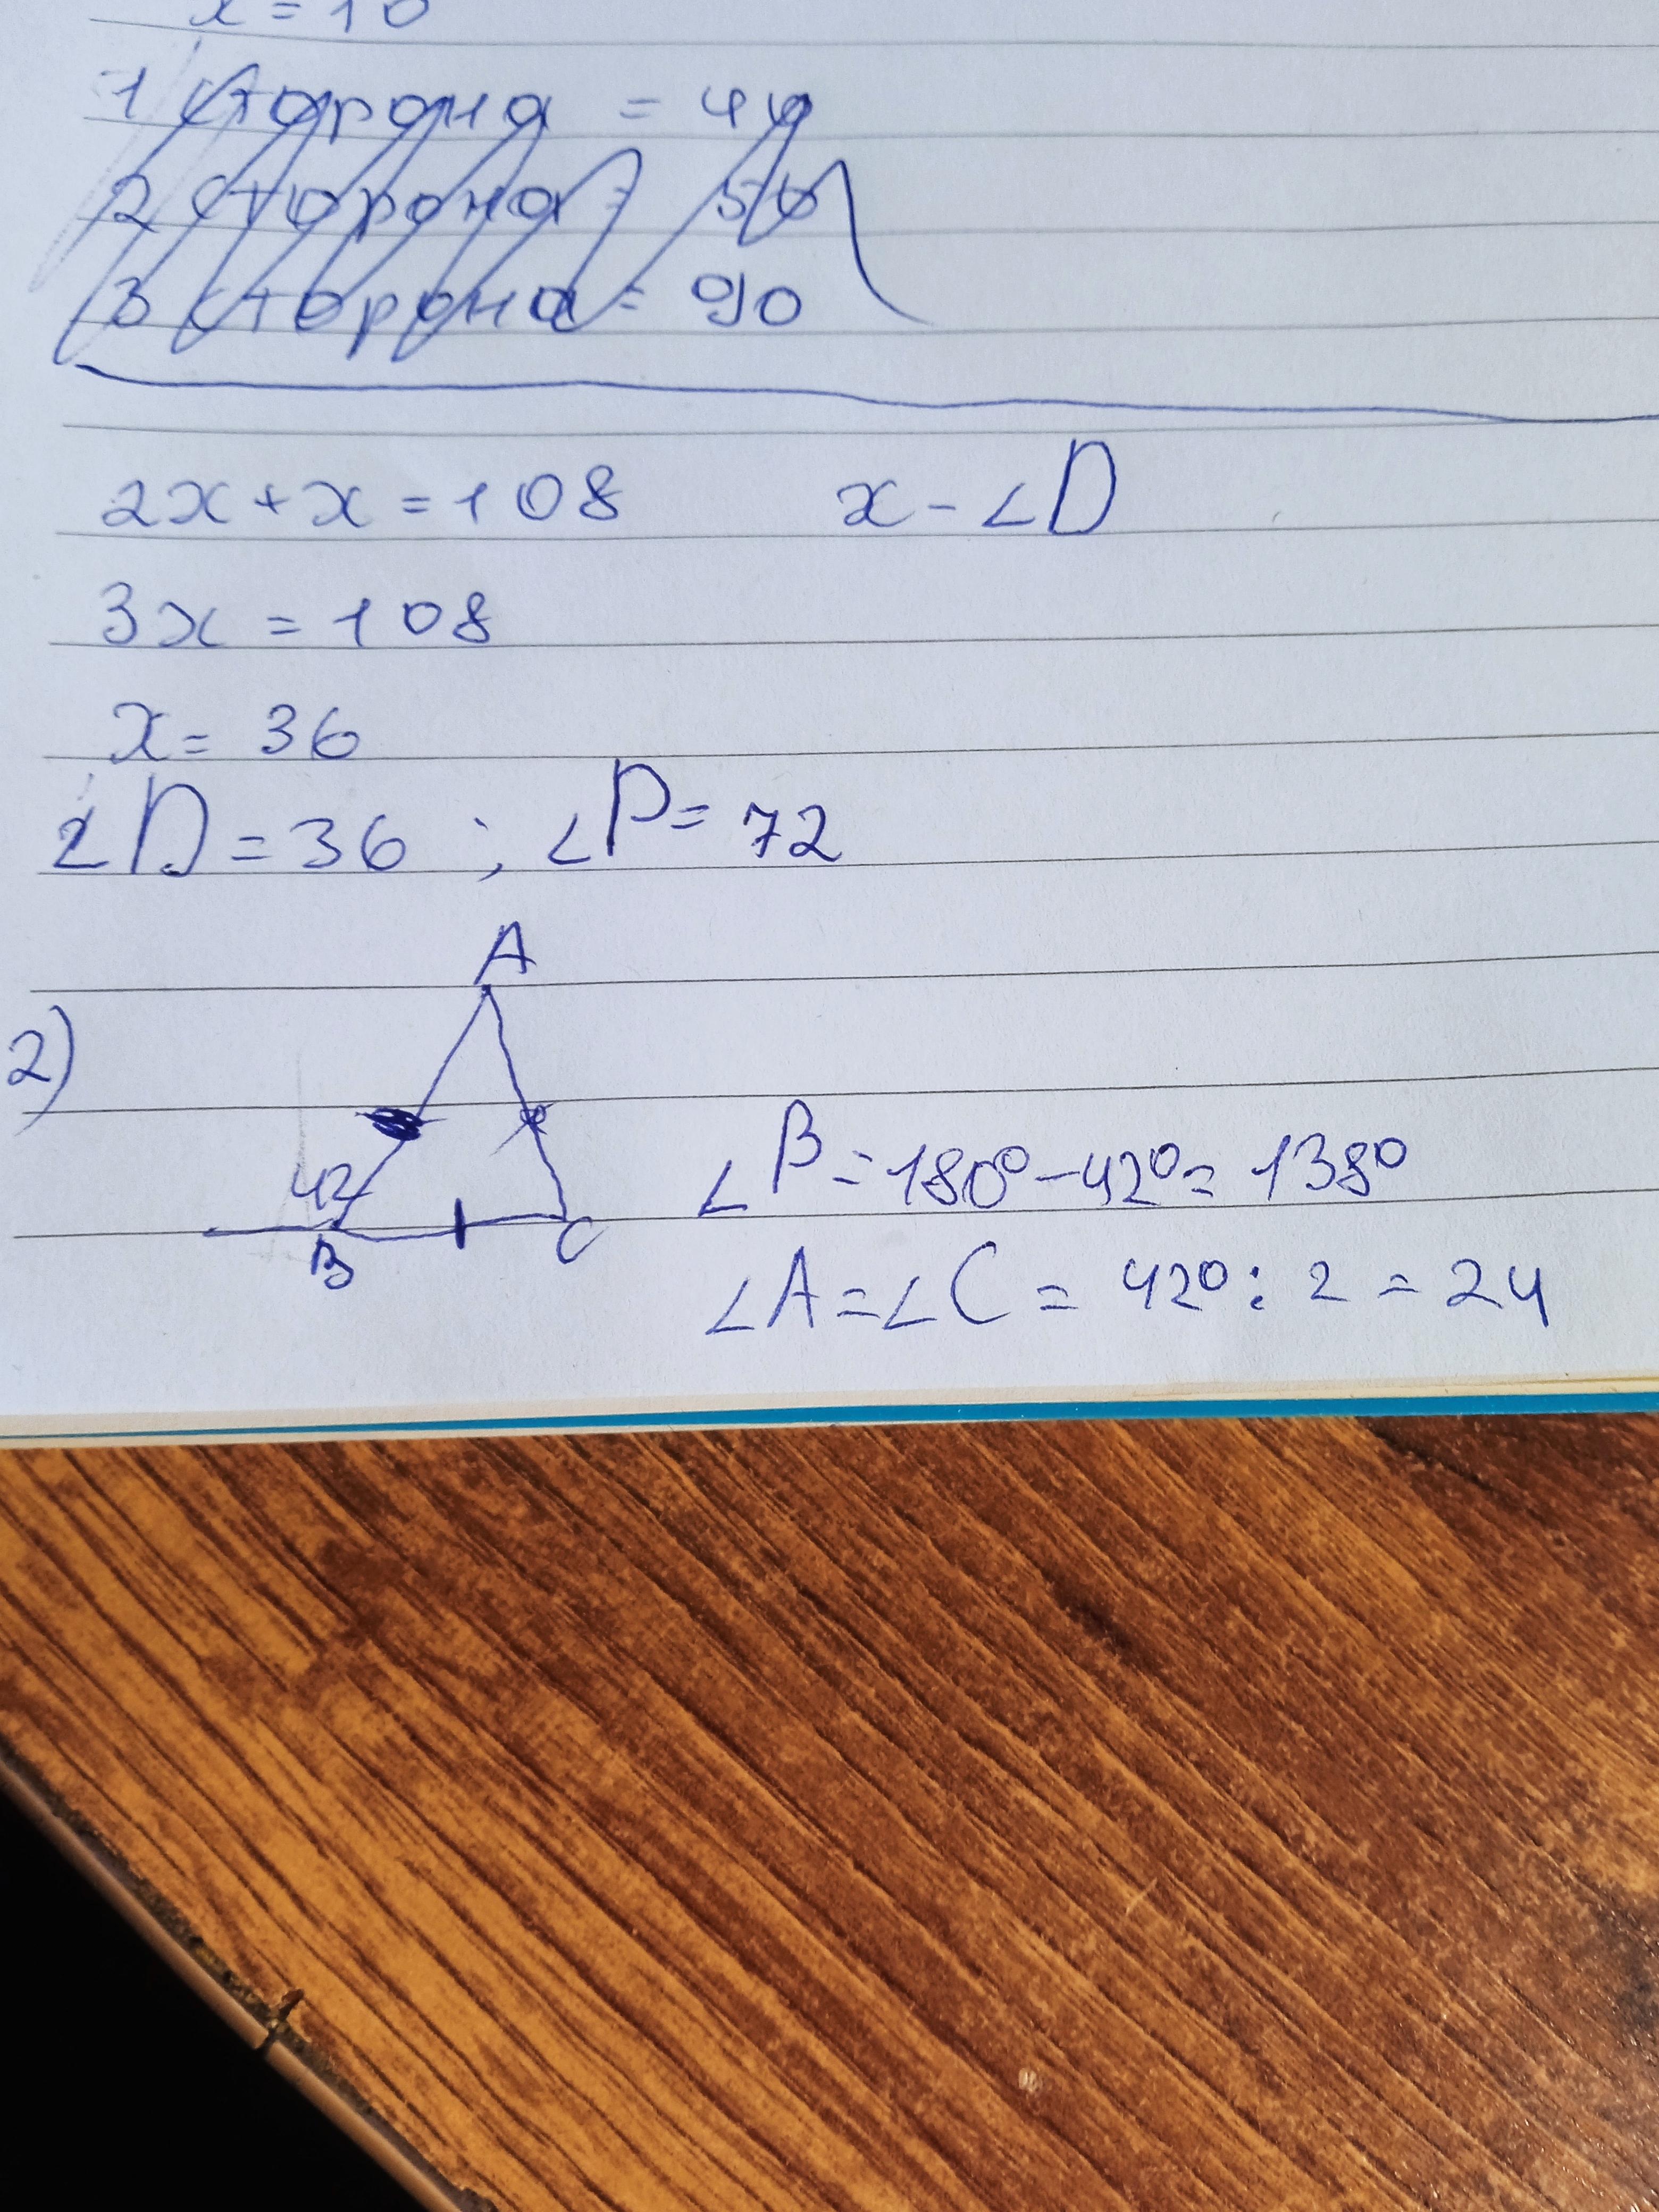 x = 10
1 сторона = 44
2 сторона = 56
3 сторона = 90
2x + x = 108 x - ∠D
3x = 108
x = 36
∠D = 36 ; ∠P = 72
2)
A
42
B C
∠B = 180° - 42° = 138°
∠A = ∠C = 42° : 2 = 24